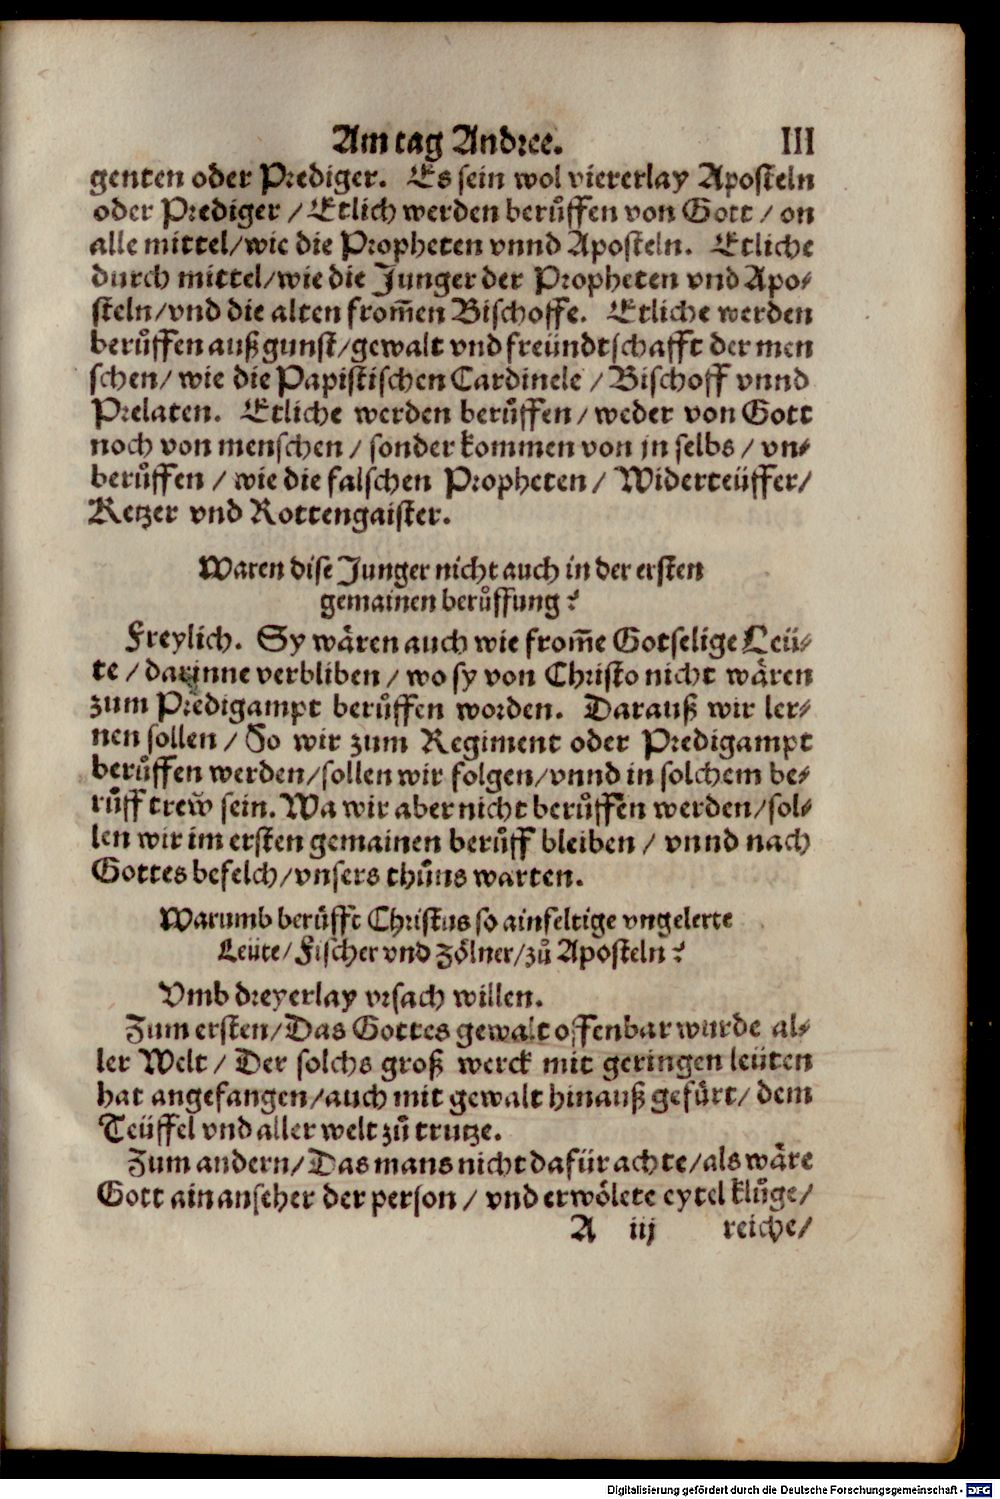 Am tag Andree. III
genten oder Prediger. Es sein wol viererlay Aposteln
oder Prediger / Etlich werden berůffen von Gott / on
alle mittel/wie die Propheten vnnd Aposteln. Etliche
durch mittel/wie die Junger der Propheten vnd Apo-
steln/vnd die alten from̃en Bischoffe. Etliche werden
berůffen auß gunst/gewalt vnd freündtschafft der men
schen/ wie die Papistischen Cardinele / Bischoff vnnd
Prelaten. Etliche werden berůffen/ weder von Gott
noch von menschen / sonder kommen von jn selbs / vn-
berůffen / wie die falschen Propheten/ Widerteüffer/
Ketzer vnd Rottengaister.
Waren dise Junger nicht auch in der ersten
gemainen berůffung?
Freylich. Sy wären auch wie from̃e Gotselige Leü-
te / darinne verbliben / wo sy von Christo nicht wären
zum Predigampt berůffen worden. Darauß wir ler-
nen sollen / So wir zum Regiment oder Predigampt
berůffen werden/sollen wir folgen/vnnd in solchem be-
růff trew̃ sein. Wa wir aber nicht berůffen werden/sol-
len wir im ersten gemainen berůff bleiben / vnnd nach
Gottes befelch/vnsers thůns warten.
Warumb berůfft Christus so ainfeltige vngelerte
Leüte/Fischer vnd Zölner/zů Aposteln?
Vmb dreyerlay vrsach willen.
Zum ersten/Das Gottes gewalt offenbar wurde al-
ler Welt / Der solchs groß werck mit geringen leüten
hat angefangen/auch mit gewalt hinauß gefürt/ dem
Teüffel vnd aller welt zů trutze.
Zum andern/Das mans nicht dafür achte/als wäre
Gott ain anseher der person / vnd erwölete eytel klůge/
A iij reiche/
Digitalisierung gefördert durch die Deutsche Forschungsgemeinschaft - DFG